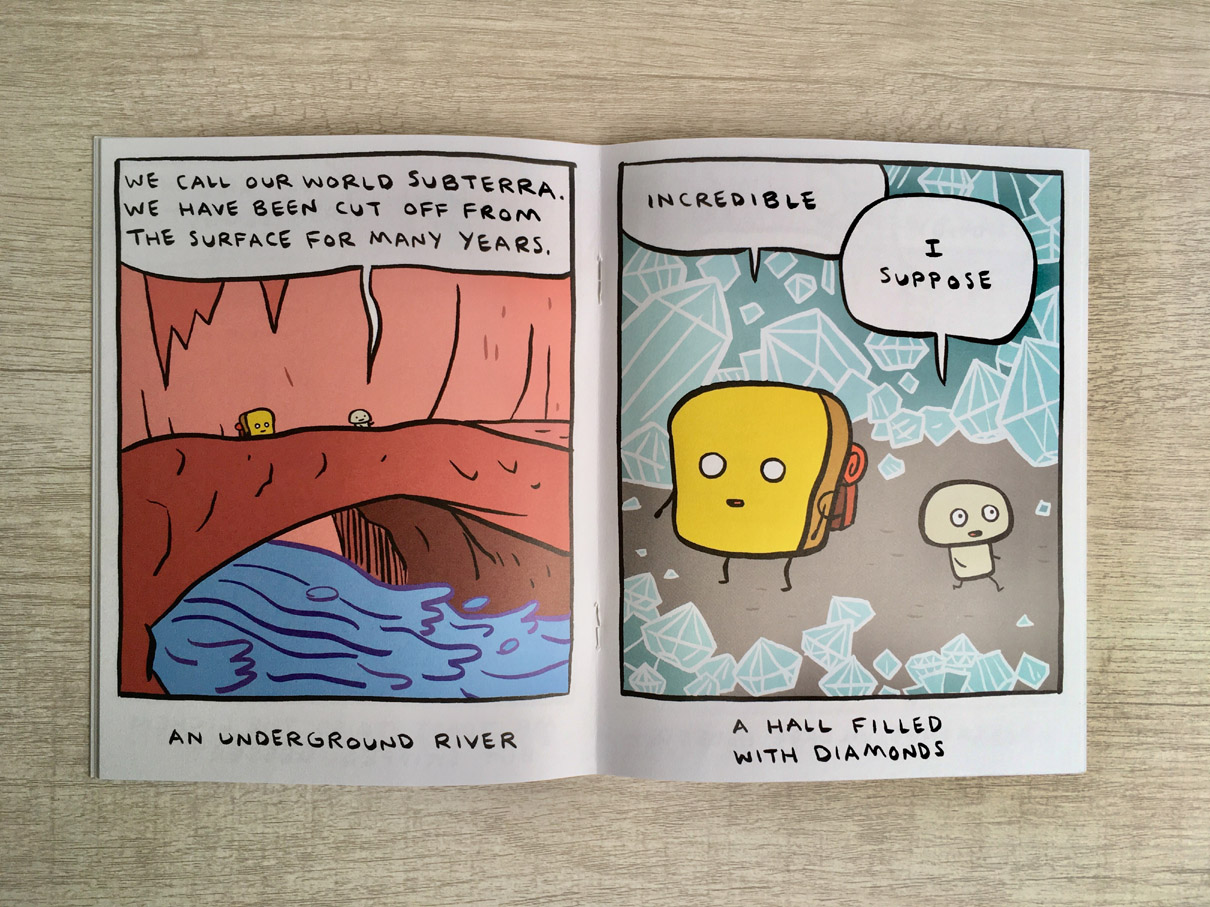 WE CALL OUR WORLD SUBTERRA.
WE HAVE BEEN CUT OFF FROM
THE SURFACE FOR MANY YEARS.
AN UNDERGROUND RIVER
INCREDIBLE
I
SUPPOSE
A HALL FILLED
WITH DIAMONDS